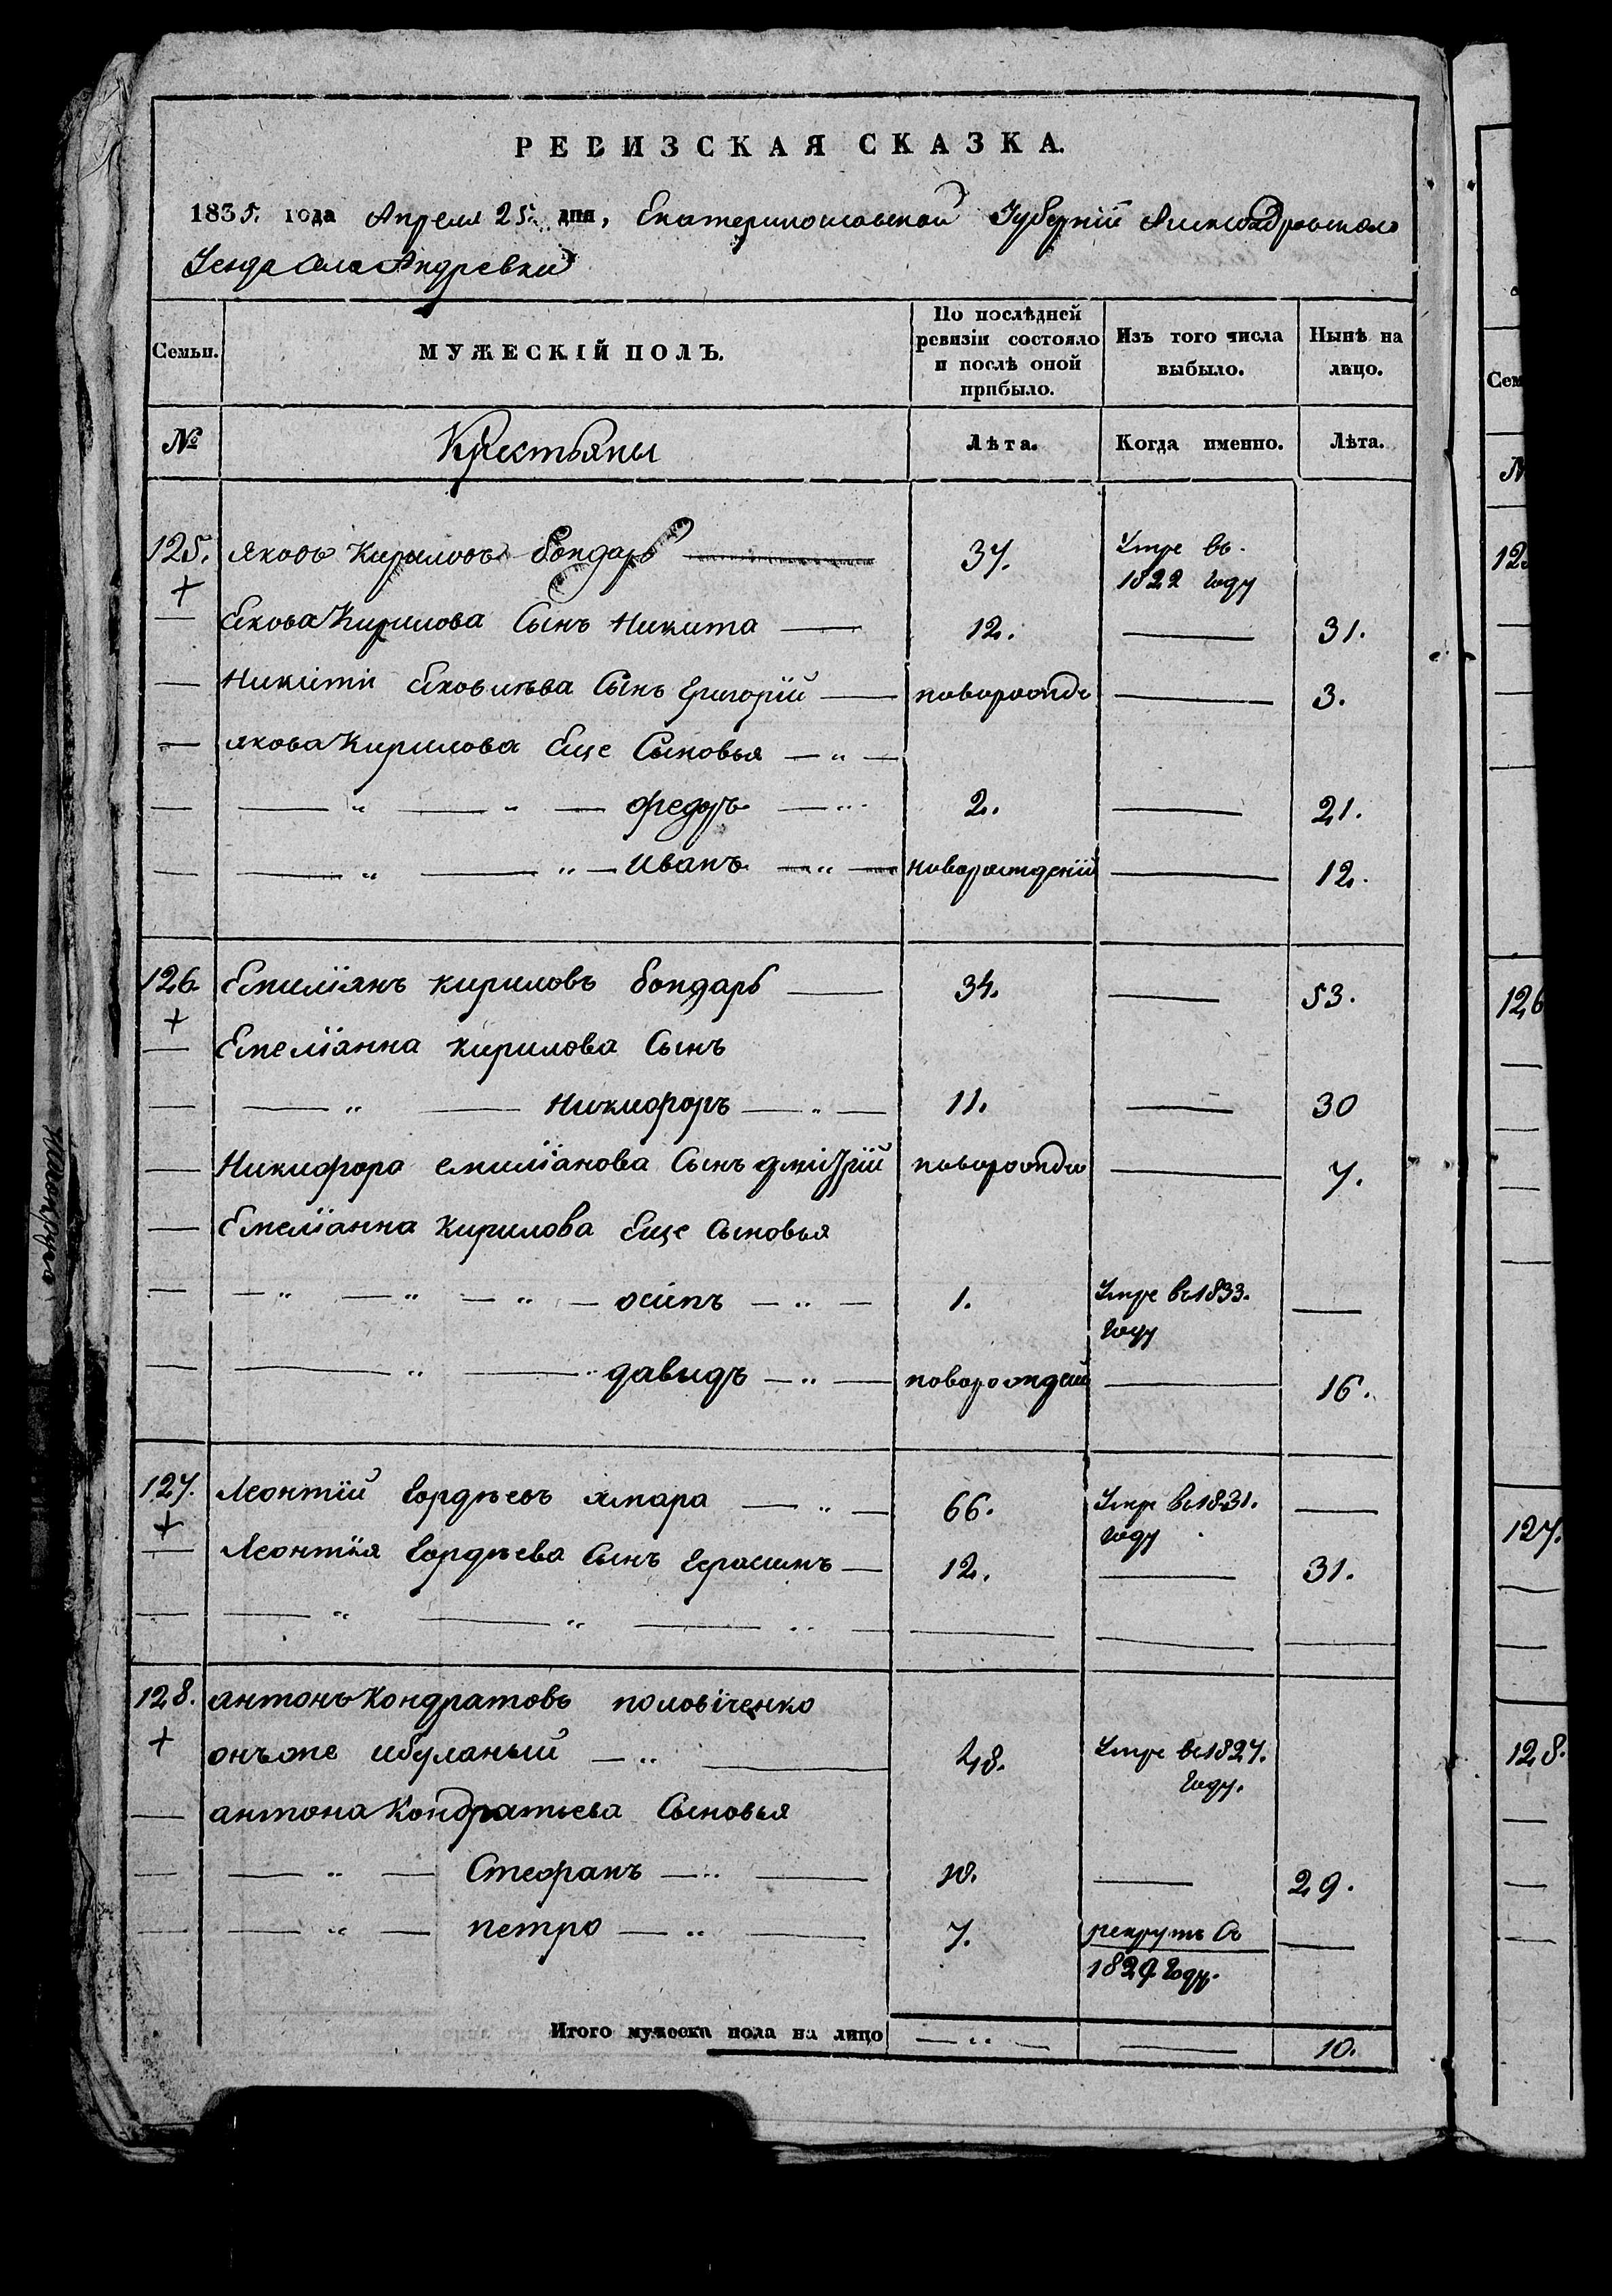 РЕВИЗСКАЯ СКАЗКА.
1835. года Апреля 25. дня, Екатеринославской Губернiи Александровскаго
Уезда Села Андревки
Семьи. МУЖЕСКІЙ ПОЛЪ. По послѣдней ревизіи состояло и послѣ оной прибыло. Изъ того числа выбыло. Нынѣ на лицо.
№ Крестьяны Лѣта. Когда именно. Лѣта.
125. яковъ Кириловъ бондарь 37. Умре въ 1822 году
+
— Екова Кирилова Сынъ Никита — 12. — 31.
— Никити Яковлѣва Сынъ Григорiй — новорожде — 3.
— якова Кирилова Еще Сыновья — " —
— — " — " — федоръ — " 2. — 21.
— — " — " — Иванъ — " — новорожденiй — 12.
126. Емилiянъ кириловъ бондарь — 34. — 53.
+
— Емелiанна кирилова Сынъ
— — " — Никифоръ — " — 11. — 30
— Никифора емилiанова Сынъ дмiтрiй новорожде — 7.
— Емелiанна кирилова Еще Сыновья
— — " — " — " — осипъ — " — 1. Умре въ 1833. году —
— — " — " давыдъ — " — новорождений — 16.
127. Леонтiй гордѣевъ хмара — " — 66. Умре въ 1831. году —
+
— Леонтiя гордѣева Сынъ герасимъ — 12. — 31.
— — " — " — " — — — —
128. антонъ Кондратовъ половiченко
+ онъже ибуланый — " — 48. Умре въ 1827. году.
— антона Кондратьева Сыновья
— — " — Стефанъ — " — 10. — 29.
— — " — петро — " — 7. рекрутъ въ 1829 году. —
Итого мужеска пола на лицо — " — — 10.
Сем
N
125
126
127.
128.